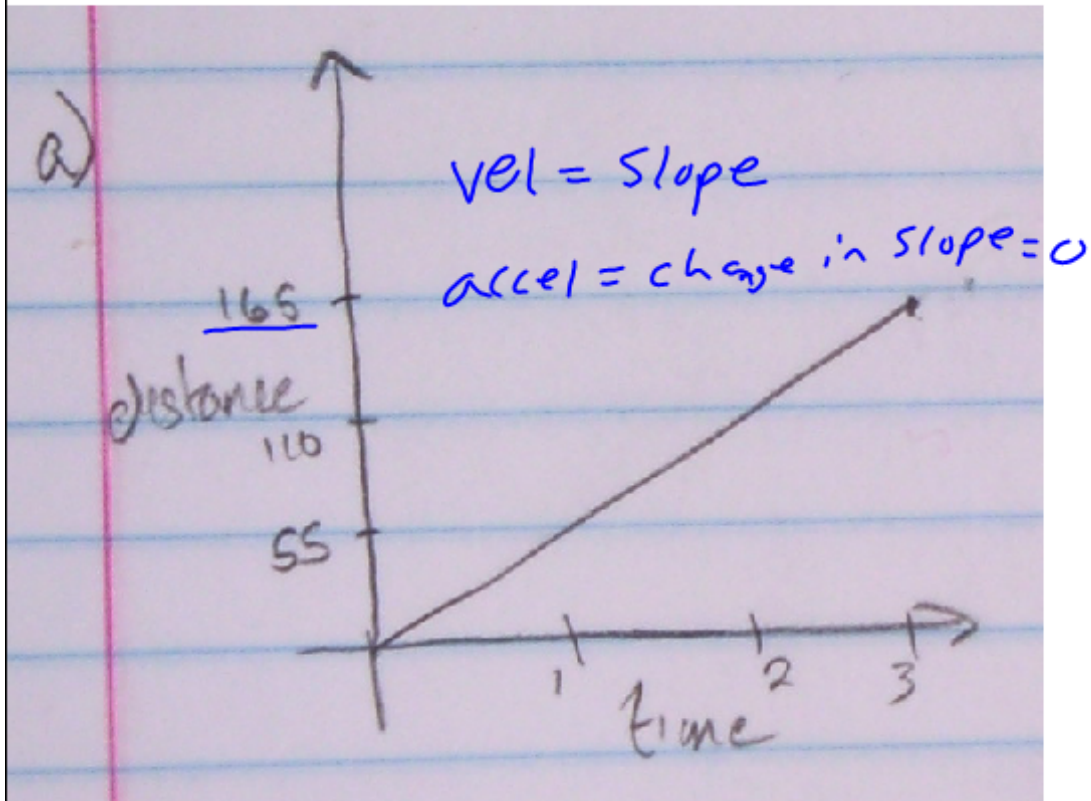 a)
vel = slope
accel = change in slope = 0
165
distance
110
55
1 2 3
time